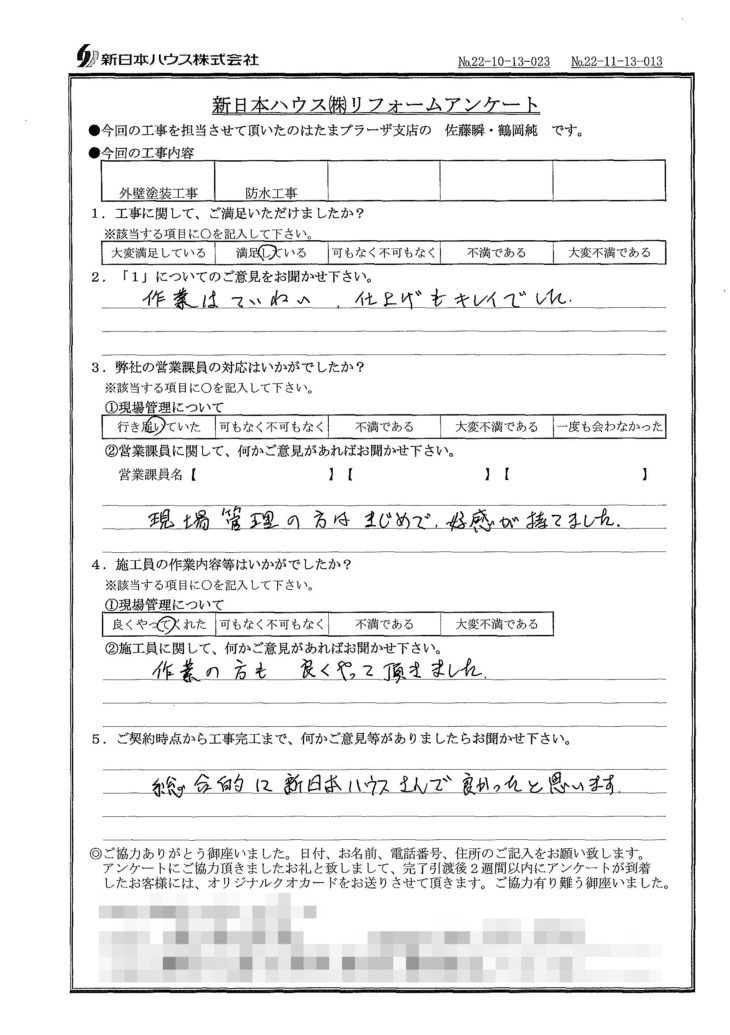 新日本ハウス株式会社
No.22-10-13-023 No.22-11-13-013
新日本ハウス㈱リフォームアンケート
●今回の工事を担当させて頂いたのはたまプラーザ支店の 佐藤瞬・鶴岡純 です。
●今回の工事内容
外壁塗装工事 防水工事
1．工事に関して、ご満足いただけましたか？
※該当する項目に○を記入して下さい。
大変満足している 満足している 可もなく不可もなく 不満である 大変不満である
2．「1」についてのご意見をお聞かせ下さい。
作業はていねい、仕上げもキレイでした.
3．弊社の営業課員の対応はいかがでしたか？
※該当する項目に○を記入して下さい。
①現場管理について
行き届いていた 可もなく不可もなく 不満である 大変不満である 一度も会わなかった
②営業課員に関して、何かご意見があればお聞かせ下さい。
営業課員名【 】【 】【 】
現場管理の方はまじめで、好感が持てました.
4．施工員の作業内容等はいかがでしたか？
※該当する項目に○を記入して下さい。
①現場管理について
良くやってくれた 可もなく不可もなく 不満である 大変不満である
②施工員に関して、何かご意見があればお聞かせ下さい。
作業の方も 良くやって頂きました.
5．ご契約時点から工事完工まで、何かご意見等がありましたらお聞かせ下さい。
総合的に新日本ハウスさんで良かったと思います.
◎ご協力ありがとう御座いました。日付、お名前、電話番号、住所のご記入をお願い致します。
アンケートにご協力頂きましたお礼と致しまして、完了引渡後２週間以内にアンケートが到着
したお客様には、オリジナルクオカードをお送りさせて頂きます。ご協力有り難う御座いました。